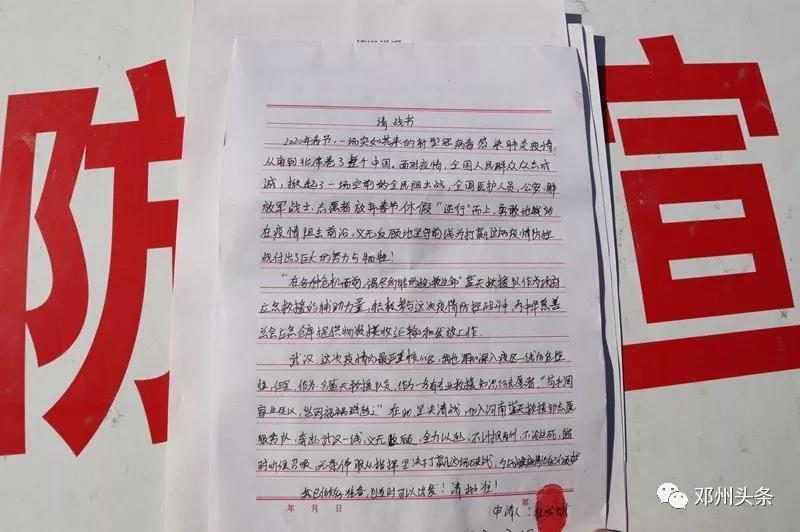 防
宣
请战书
2020年春节,一场突如其来的新型冠病毒感染肺炎疫情,
从南到北席卷了整个中国。面对疫情,全国人民群众众志成
诚,掀起了一场空前的全民阻击战,全国医护人员、公安、解
放军战士、志愿者放弃春节休假"逆行"而上,勇敢地战斗
在疫情阻击前沿,义无反顾地坚守前线为打赢这场疫情防控
战付出了巨大的努力与牺牲!
"在各种危机面前,竭尽所能的挽救生命"蓝天救援队作为政府
应急救援的辅助力量,积极参与这次疫情防控战斗,为中华慈善
总会应急仓库提供物资接收运输和发放工作.
武汉,这次疫情的最严重核心区,
性,但是,作为一名蓝天救援队员,作为一名有专业救援知识的志愿者,"苟利国
家生死以,岂因祸福避趋之"在此,坚决请战,加入河南蓝天救援队志愿
服务队,奔赴武汉一线,义无反顾,全力以赴,不计报酬,不论生死,随
时听候召唤,无条件服从指挥,坚决打赢这场硬战,
我已做好准备,随时可以出发!请批准!
年 月 日
申请人:
邓州头条